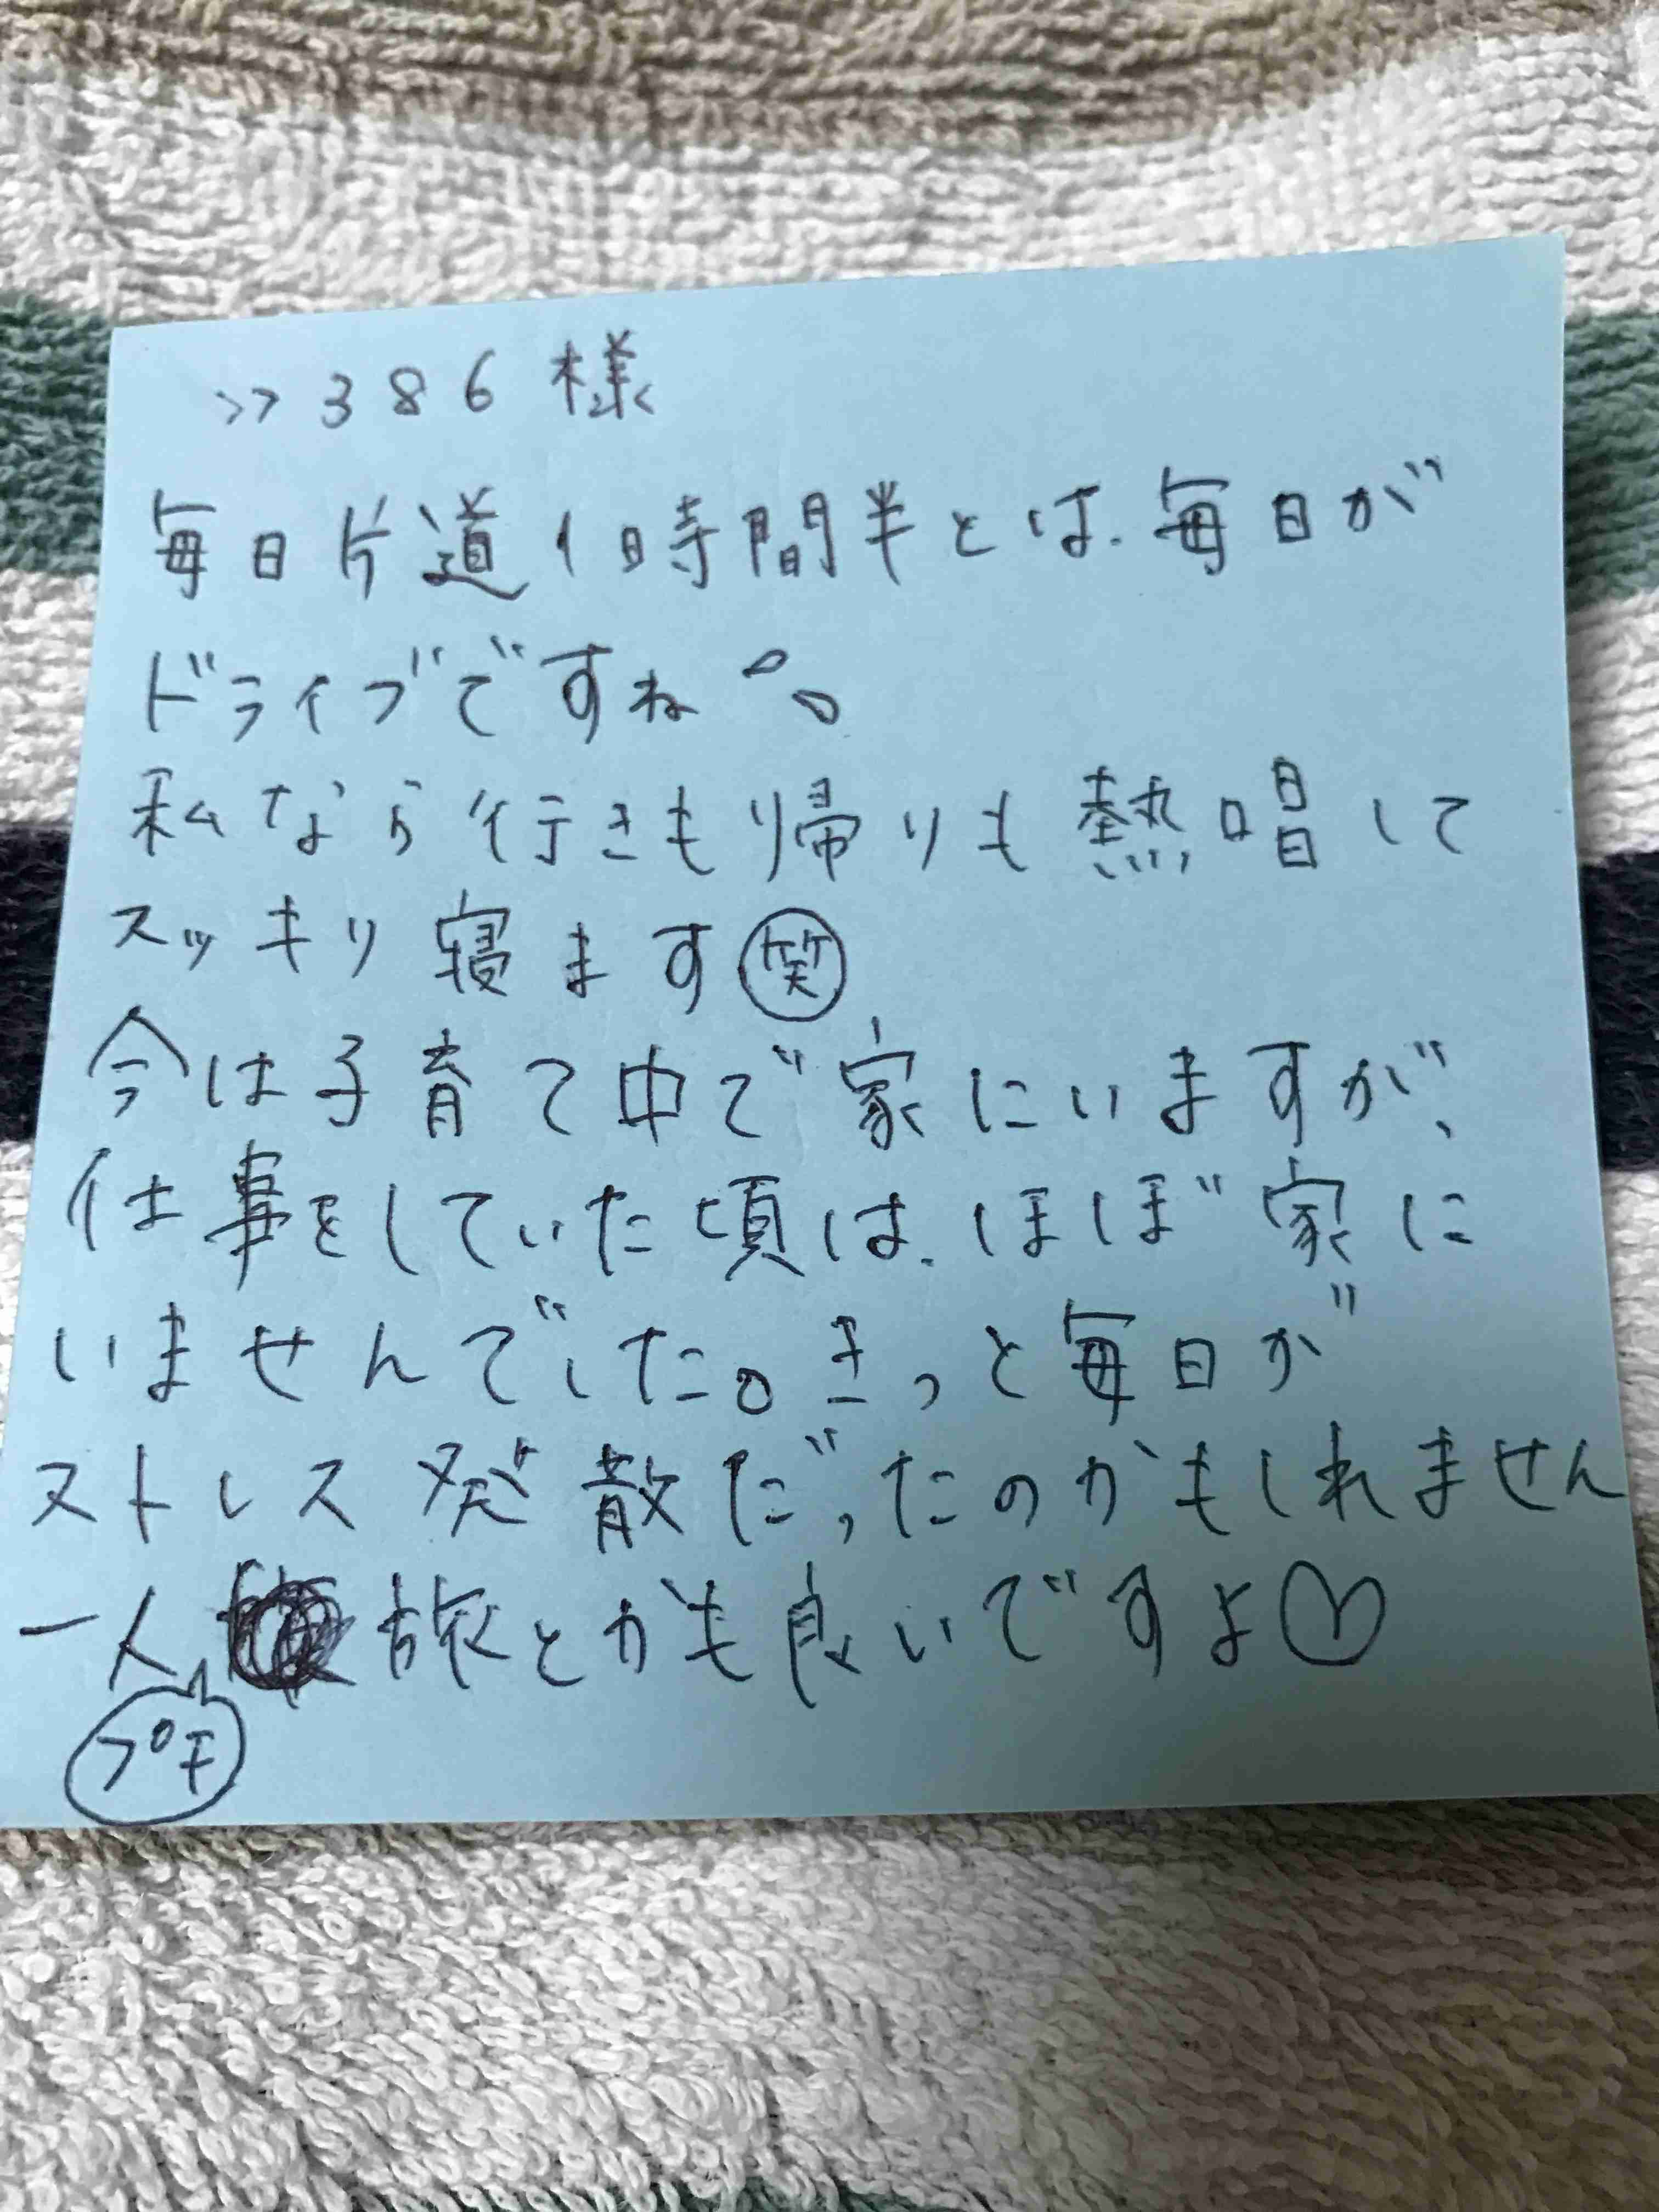 >>386様
毎日片道1時間半とは、毎日が
ドライブですね
私なら行きも帰りも熱唱して
スッキリ寝ます笑
今は子育て中で家にいますが、
仕事をしていた頃は、ほぼ家に
いませんでした。きっと毎日が
ストレス発散だったのかもしれません
一人旅とかも良いですよ♡
プチ